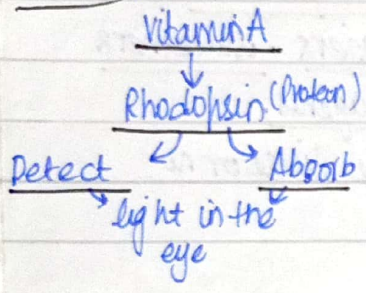 Vitamin A
Rhodopsin (Protein)
Detect Absorb
light in the
eye